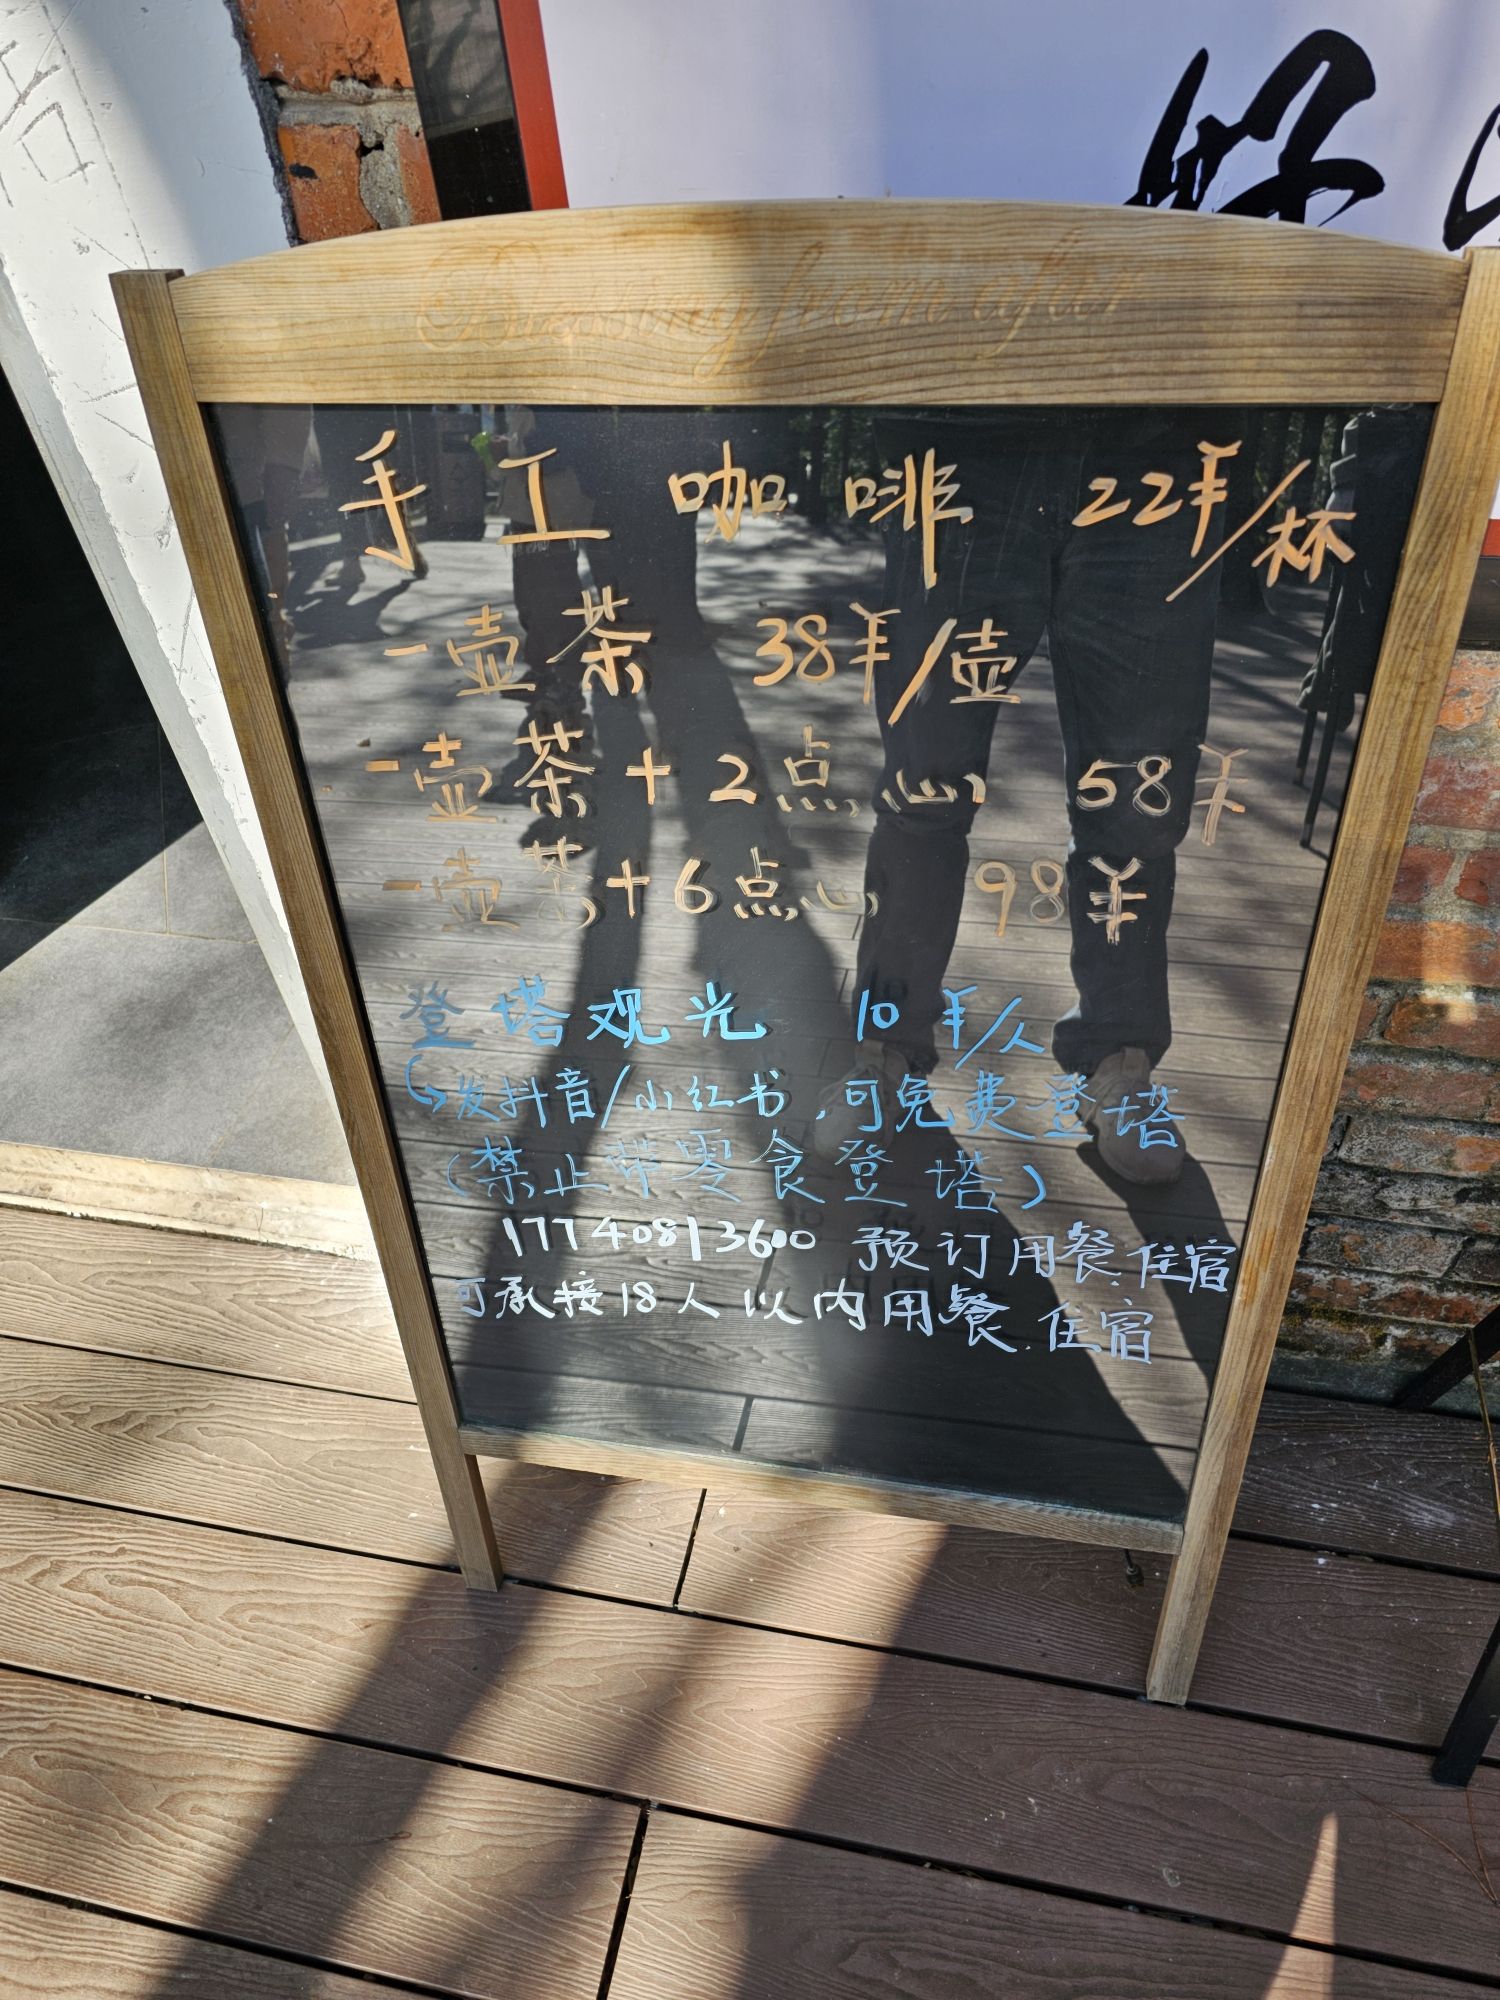 好
Blessing from afar
手工咖啡 22¥/杯
一壶茶 38¥/壶
一壶茶+2点心 58¥
一壶茶+6点心 98¥
登塔观光 10¥/人
↳发抖音/小红书,可免费登塔
(禁止带零食登塔)
17740813600 预订用餐.住宿
可承接18人以内用餐.住宿